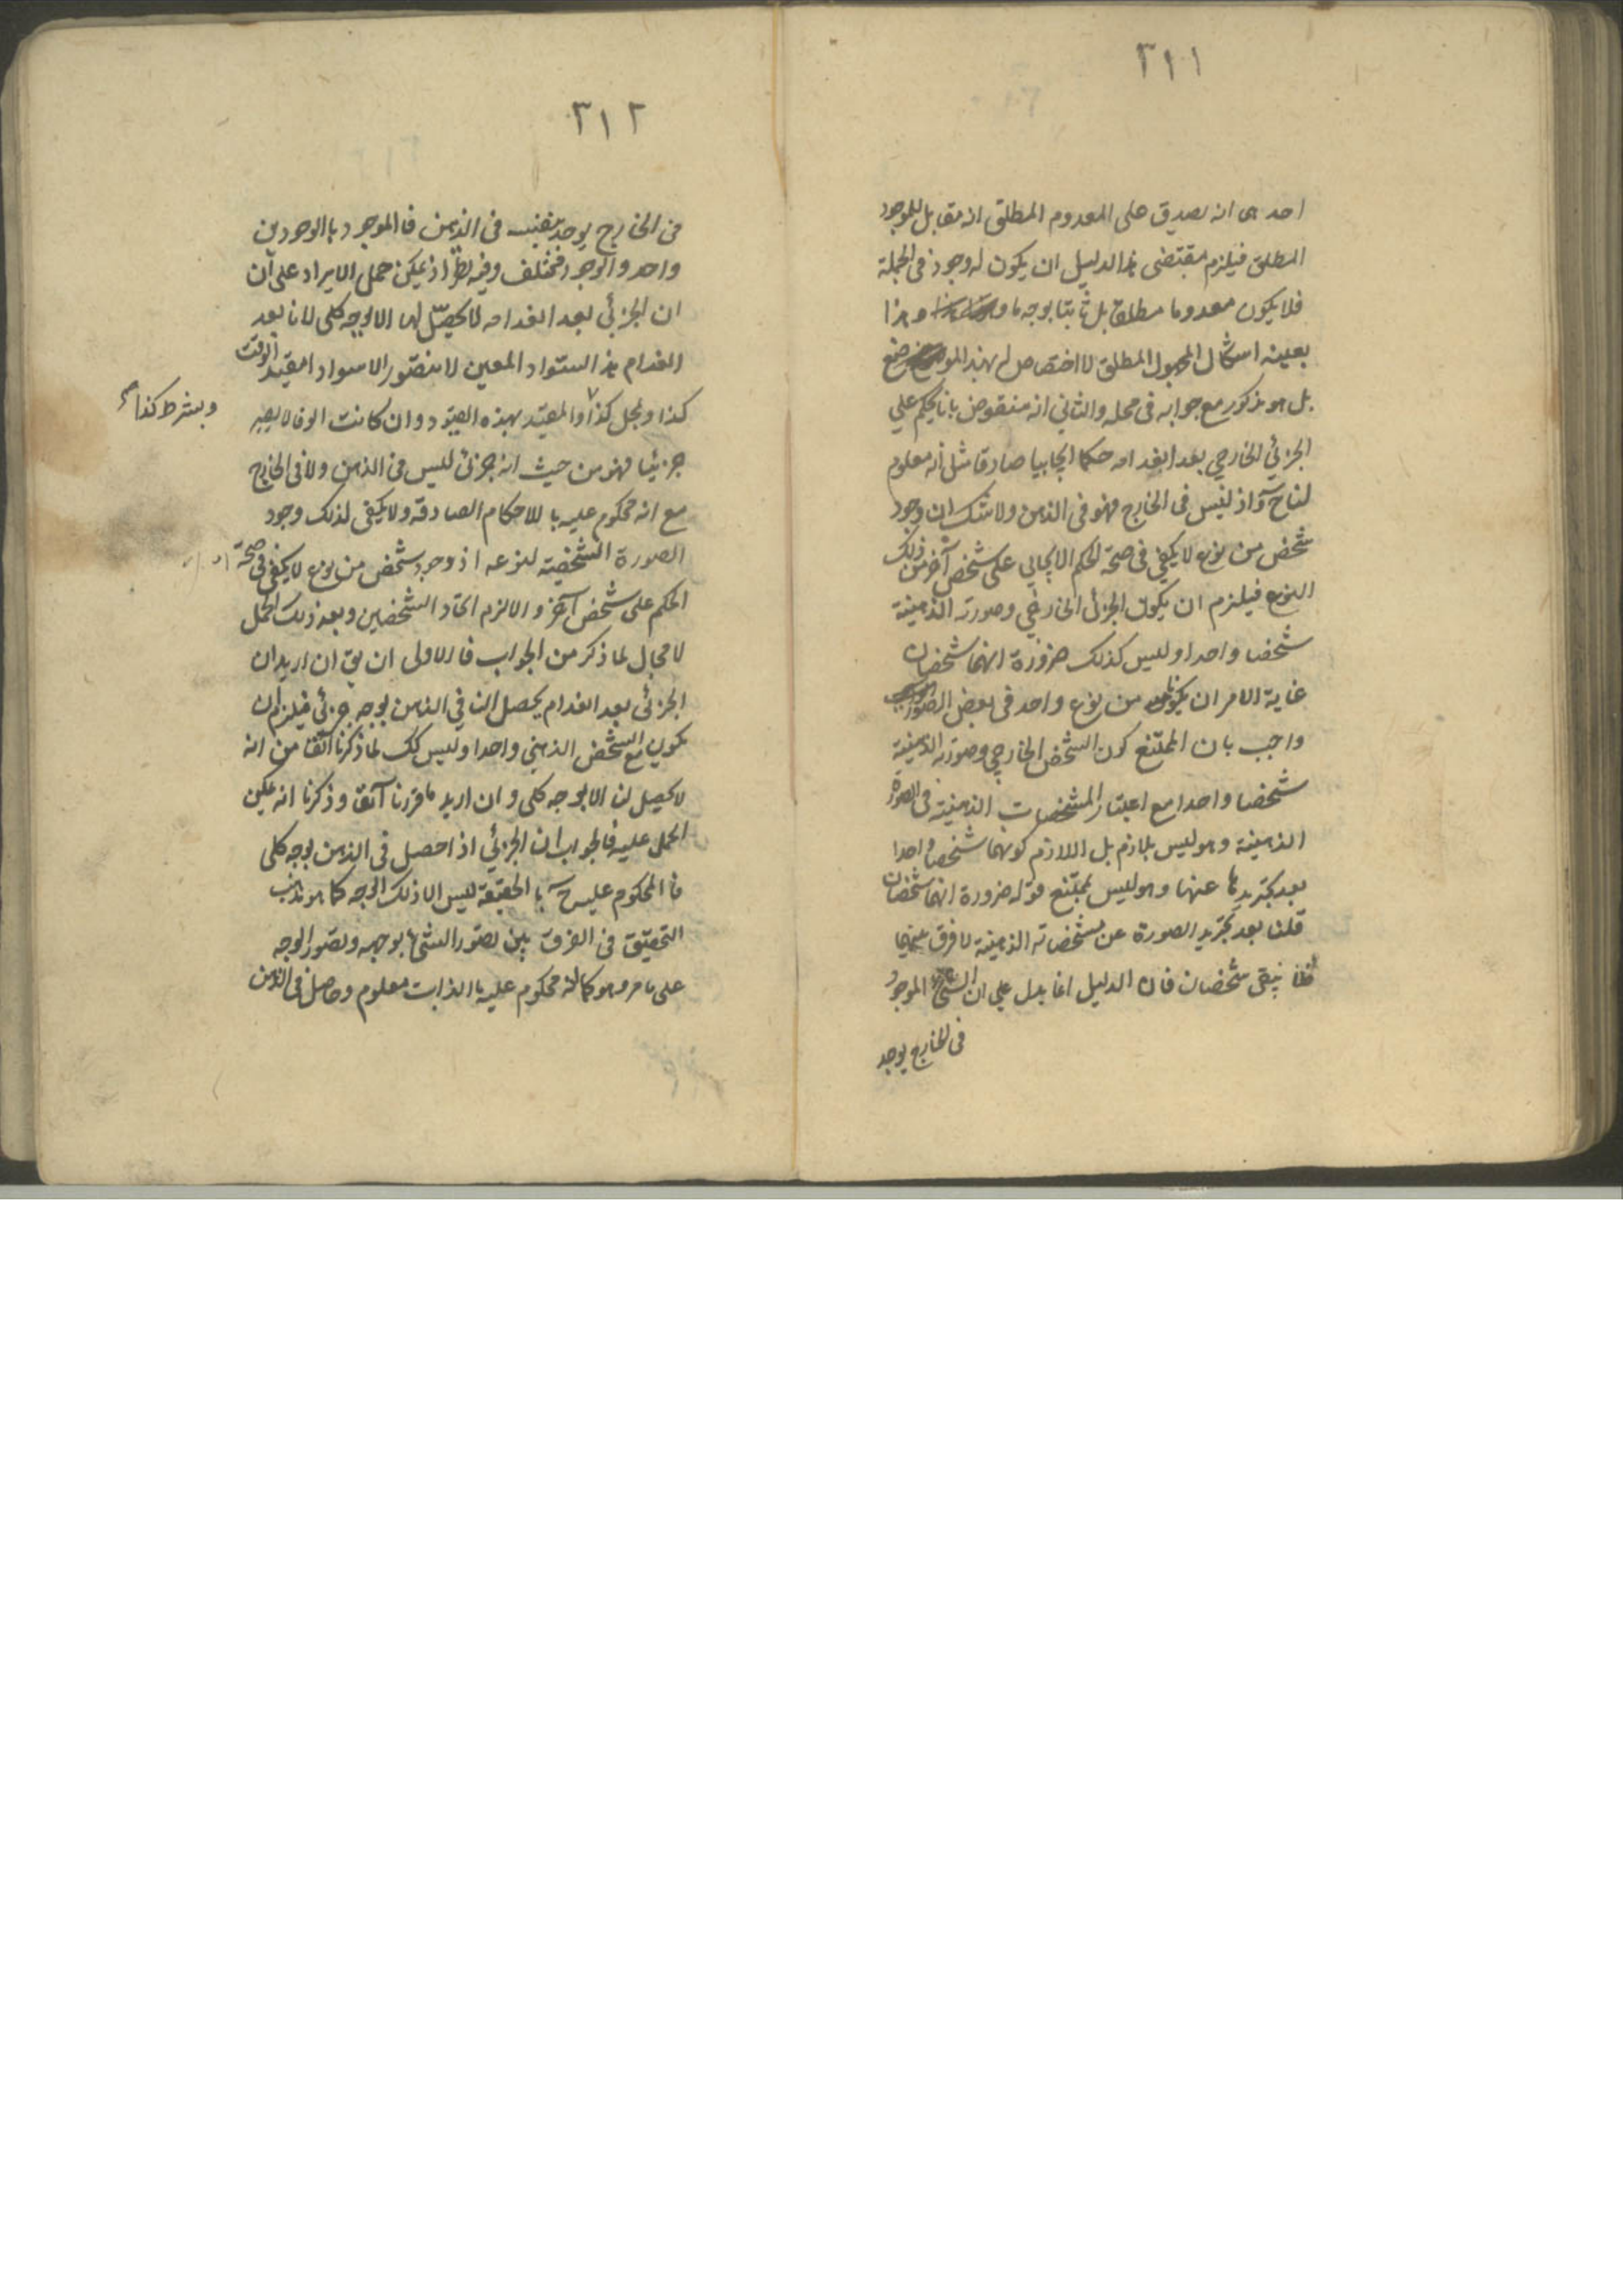 ٣١١
احدها انه يصدق على المعدوم المطلق انه مقابل للموجود
المطلق فيلزم بمقتضى هذا الدليل ان يكون له وجود فى الجملة
فلا يكون معدوما مطلقا بل ثابتا بوجه ما وهذا
بعينه اشكال المجهول المطلق لا اختصاص له بهذا الموضع
بل هو مذكور مع جوابه فى محله والثاني انه منقوض بانا نحكم على
الجزئي الخارجي بعد انعدامه حكما ايجابيا صادقا مثل انه معلوم
لنا ح واذ ليس فى الخارج فهو فى الذهن ولا شك ان وجود
شخص من نوع لا يكفي فى صحة الحكم الايجابي على شخص آخر من ذلك
النوع فيلزم ان يكون الجزئي الخارجي وصورته الذهنية
شخصا واحدا وليس كذلك ضرورة انهما شخصان
غاية الامر ان يكونا من نوع واحد فى بعض الصور
واجيب بان الممتنع كون الشخص الخارجي وصورته الذهنية
شخصا واحدا مع اعتبار المشخصات الذهنية فى الصورة
الذهنية وهو ليس بلازم بل اللازم كونهما شخصا واحدا
بعد تجريدها عنها وهو ليس بممتنع قوله ضرورة انهما شخصان
قلنا بعد تجريد الصورة عن مشخصاته الذهنية لا فرق بينهما
فلا يبقى شخصان فان الدليل انما يدل على ان الشيء الموجود
فى الخارج يوجد
٣١٢
فى الخارج يوجد بنفسه فى الذهن فالموجود بالوجودين
واحد والوجود مختلف وفيه نظر اذ يمكن حمل الايراد على ان
ان الجزئي بعد انعدامه لا يحصل لنا الا بوجه كلى لانا بعد
انعدام هذا السواد المعين لا نتصور الا سوادا مقيدا بوقت
كذا ومحل كذا والمقيد بهذه القيود وان كانت الوفا لا يصير
وبشرط كذا
جزئيا فهو من حيث انه جزئى ليس فى الذهن ولا فى الخارج
مع انه محكوم عليه بالاحكام الصادقه ولا يكفى لذلك وجود
الصورة الشخصية لنوعه اذ وجود شخص من نوع لا يكفى فى صحة
الحكم على شخص آخر والا لزم اتحاد الشخصين وبعد ذلك الحمل
لا مجال لما ذكر من الجواب فالاولى ان يق ان اريد ان
الجزئى بعد انعدامه يحصل لنا في الذهن بوجه جزئي فيلزم ان
يكون مع الشخص الذهني واحدا وليس كك لما ذكرنا آنفا من انه
لا يحصل لنا الا بوجه كلى وان اريد ما قررنا آنفا وذكرنا انه يمكن
الحمل عليه فالجواب ان الجزئي اذا حصل فى الذهن بوجه كلى
فالمحكوم عليه ح بالحقيقة ليس الا ذلك الوجه كما هو مذهب
التحقيق فى الفرق بين تصور الشئ بوجهه وتصور الوجه
على ما مر وهو كما انه محكوم عليه بالذات معلوم وحاصل فى الذهن